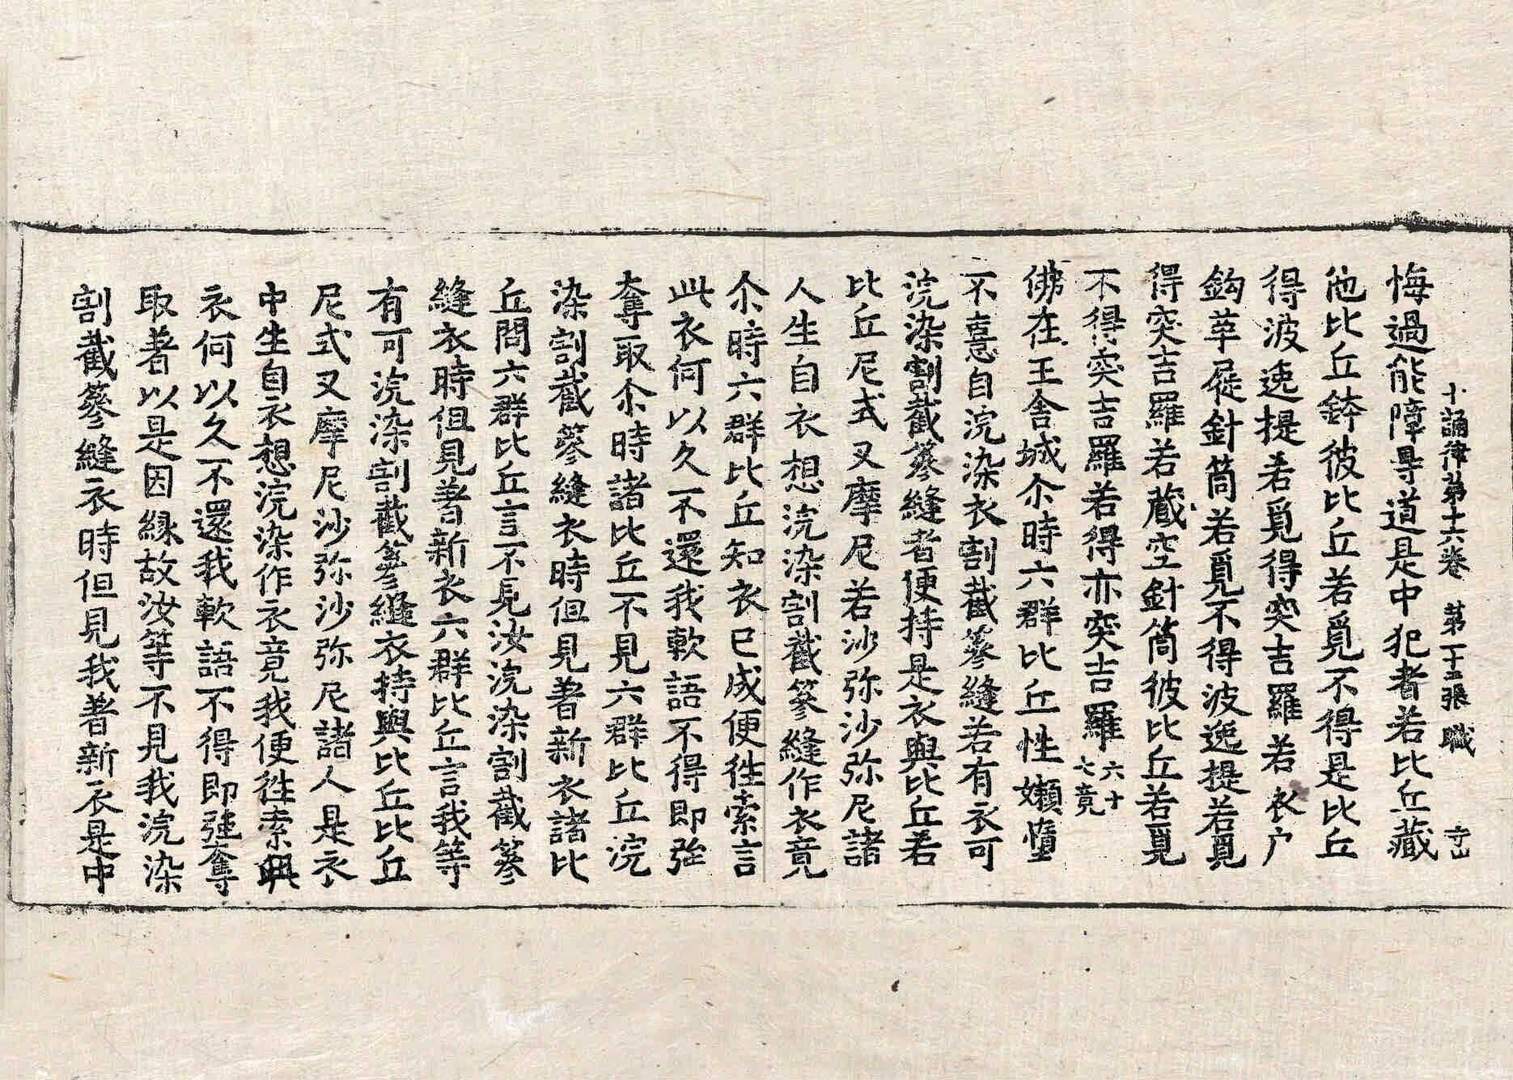 十誦律第十六卷 第二十五張 職 寺山
悔過能障㝵道是中犯者若比丘藏
他比丘鉢彼比丘若覓不得是比丘
得波逸提若覓得突吉羅若衣户
鈎革屣針筒若覓不得波逸提若覓
得突吉羅若藏空針筒彼比丘若覓
不得突吉羅若得亦突吉羅六十七竟
佛在王舍城尒時六群比丘性嬾墮
不憙自浣染衣割截簩縫若有衣可
浣染割截簩縫者便持是衣與比丘若
比丘尼式叉摩尼若沙弥沙弥尼諸
人生自衣想浣染割截簩縫作衣竟
尒時六群比丘知衣已成便徃索言
此衣何以久不還我軟語不得即強
奪取尒時諸比丘不見六群比丘浣
染割截簩縫衣時但見著新衣諸比
丘問六群比丘言不見汝浣染割截簩
縫衣時但見著新衣六群比丘言我等
有可浣染割截簩縫衣持與比丘比丘
尼式叉摩尼沙弥沙弥尼諸人是衣
中生自衣想浣染作衣竟我便徃索與
衣何以久不還我軟語不得即強奪
取著以是因縁故汝等不見我浣染
割截簩縫衣時但見我著新衣是中